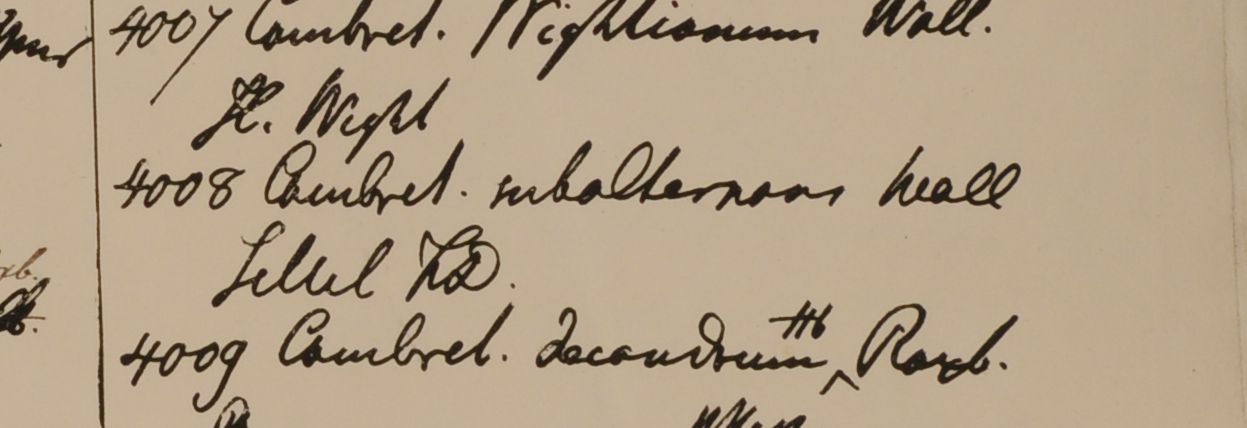 4007 Combret. Wightianum Wall.
H. Wight
4008 Combret. subalternans Wall
Sillet FD.
4009 Combret. decandrum Hb Roxb.